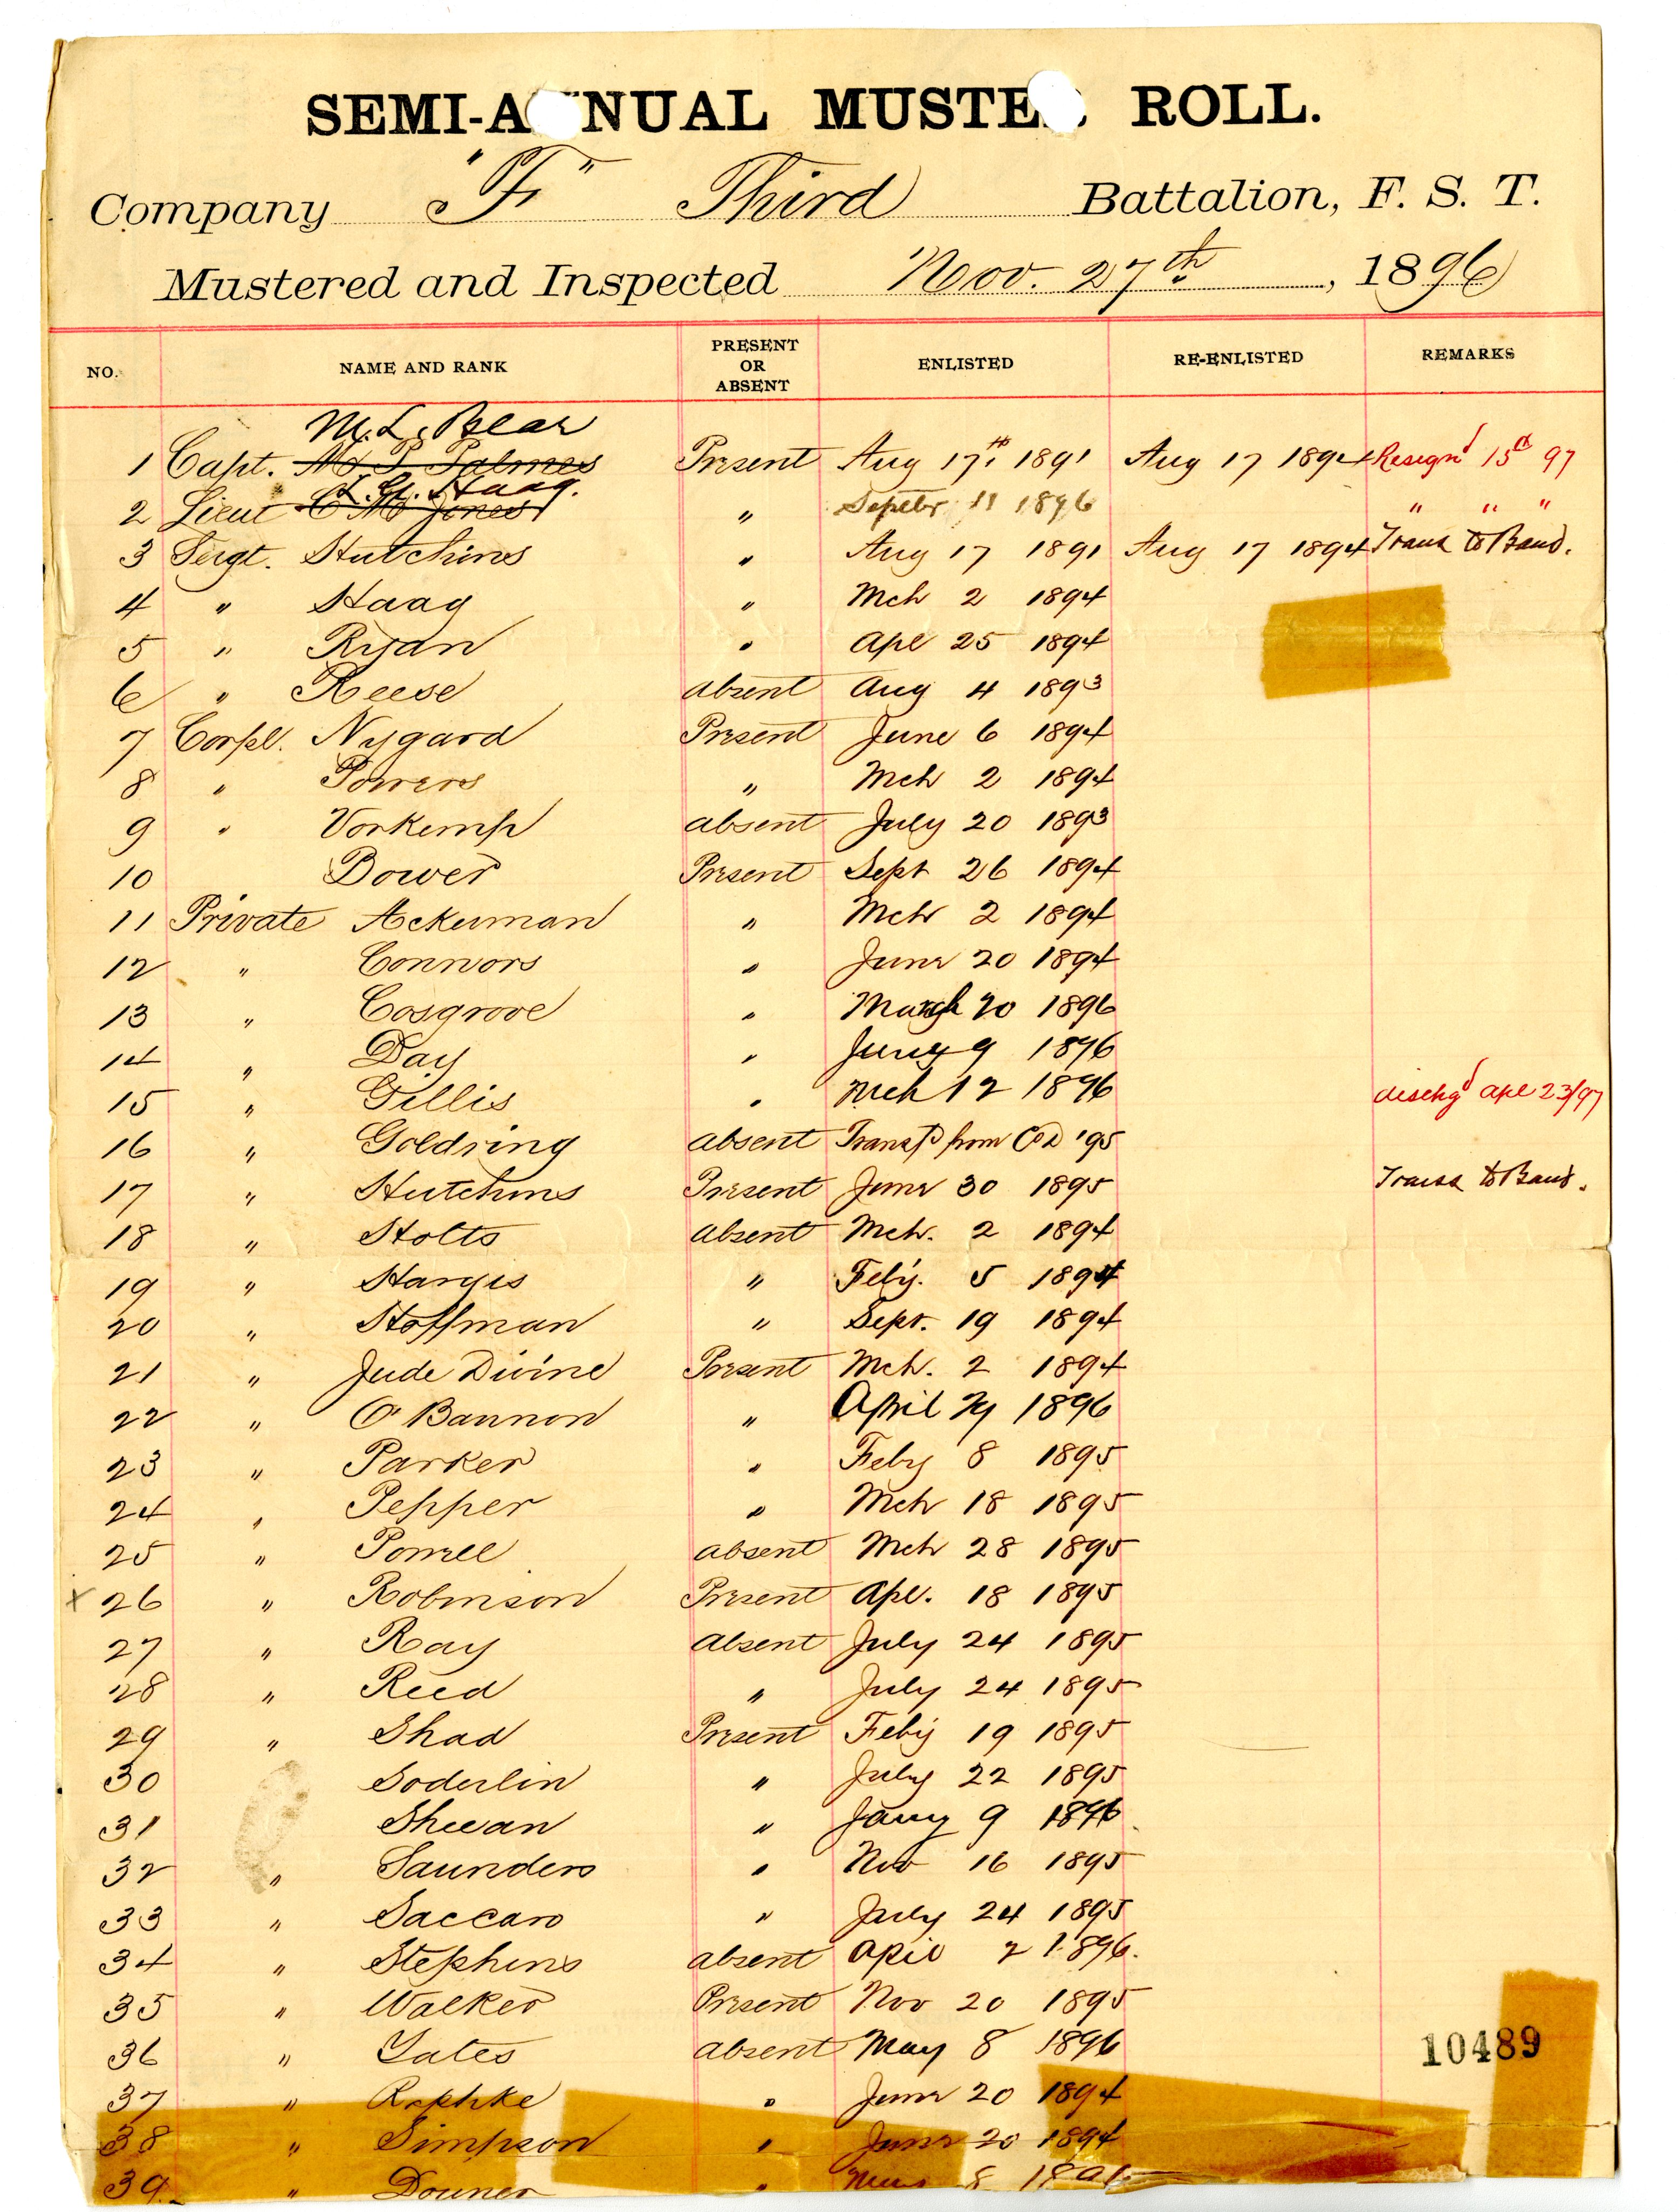 SEMI-ANNUAL MUSTER ROLL.
Company "F" Third Battalion, F. S. T.
Mustered and Inspected Nov. 27th, 1896
NO. NAME AND RANK PRESENT OR ABSENT ENLISTED RE-ENLISTED REMARKS
M. L. Bear
1 Capt. Palmes Present Aug 17th 1891 Aug 17 1894 Resignd 15 97
Haag.
2 Lieut C M Jones " Septbr 11 1896 " " "
3 Sergt. Hutchins " Aug 17 1891 Aug 17 1894 Trans to Band.
4 " Haag " Mch 2 1894
5 " Ryan " Apl 25 1894
6 " Reese absent Aug 4 1893
7 Corpl. Nygard Present June 6 1894
8 " Powers " Mch 2 1894
9 " Vorkemp absent July 20 1893
10 Bower Present Sept 26 1894
11 Private Ackerman " Mch 2 1894
12 " Connors " June 20 1894
13 " Cosgrove " March 20 1896
14 " Day " 9 1896
15 " Gillis " Mch 12 1896 dischgd apl 23/97
16 " Goldring absent Transfd from Co D '95
17 " Hutchins Present June 30 1895 Trans to Band.
18 " Holts absent Mch. 2 1894
19 " Hargis " Feby. 5 1894
20 " Hoffman " Sept. 19 1894
21 " Jude Divine Present Mch. 2 1894
22 " O'Bannon " April 1896
23 " Parker " Feby 8 1895
24 " Pepper " Mch 18 1895
25 " Powell absent Mch 28 1895
x 26 " Robinson Present Apl. 18 1895
27 " Ray absent July 24 1895
28 " Reed " July 24 1895
29 " Shad Present Feby 19 1895
30 Soderlin " July 22 1895
31 Shewan " Jany 9 1896
32 " Saunders " Nov 16 1895
33 " Saccaro " July 24 1895
34 " Stephens absent April 2 1896.
35 " Walker Present Nov 20 1895
36 " Yates absent May 8 1896
10489
37 " " June 20 1894
38 " Simpson " June 20 1894
39 " Downer " 8